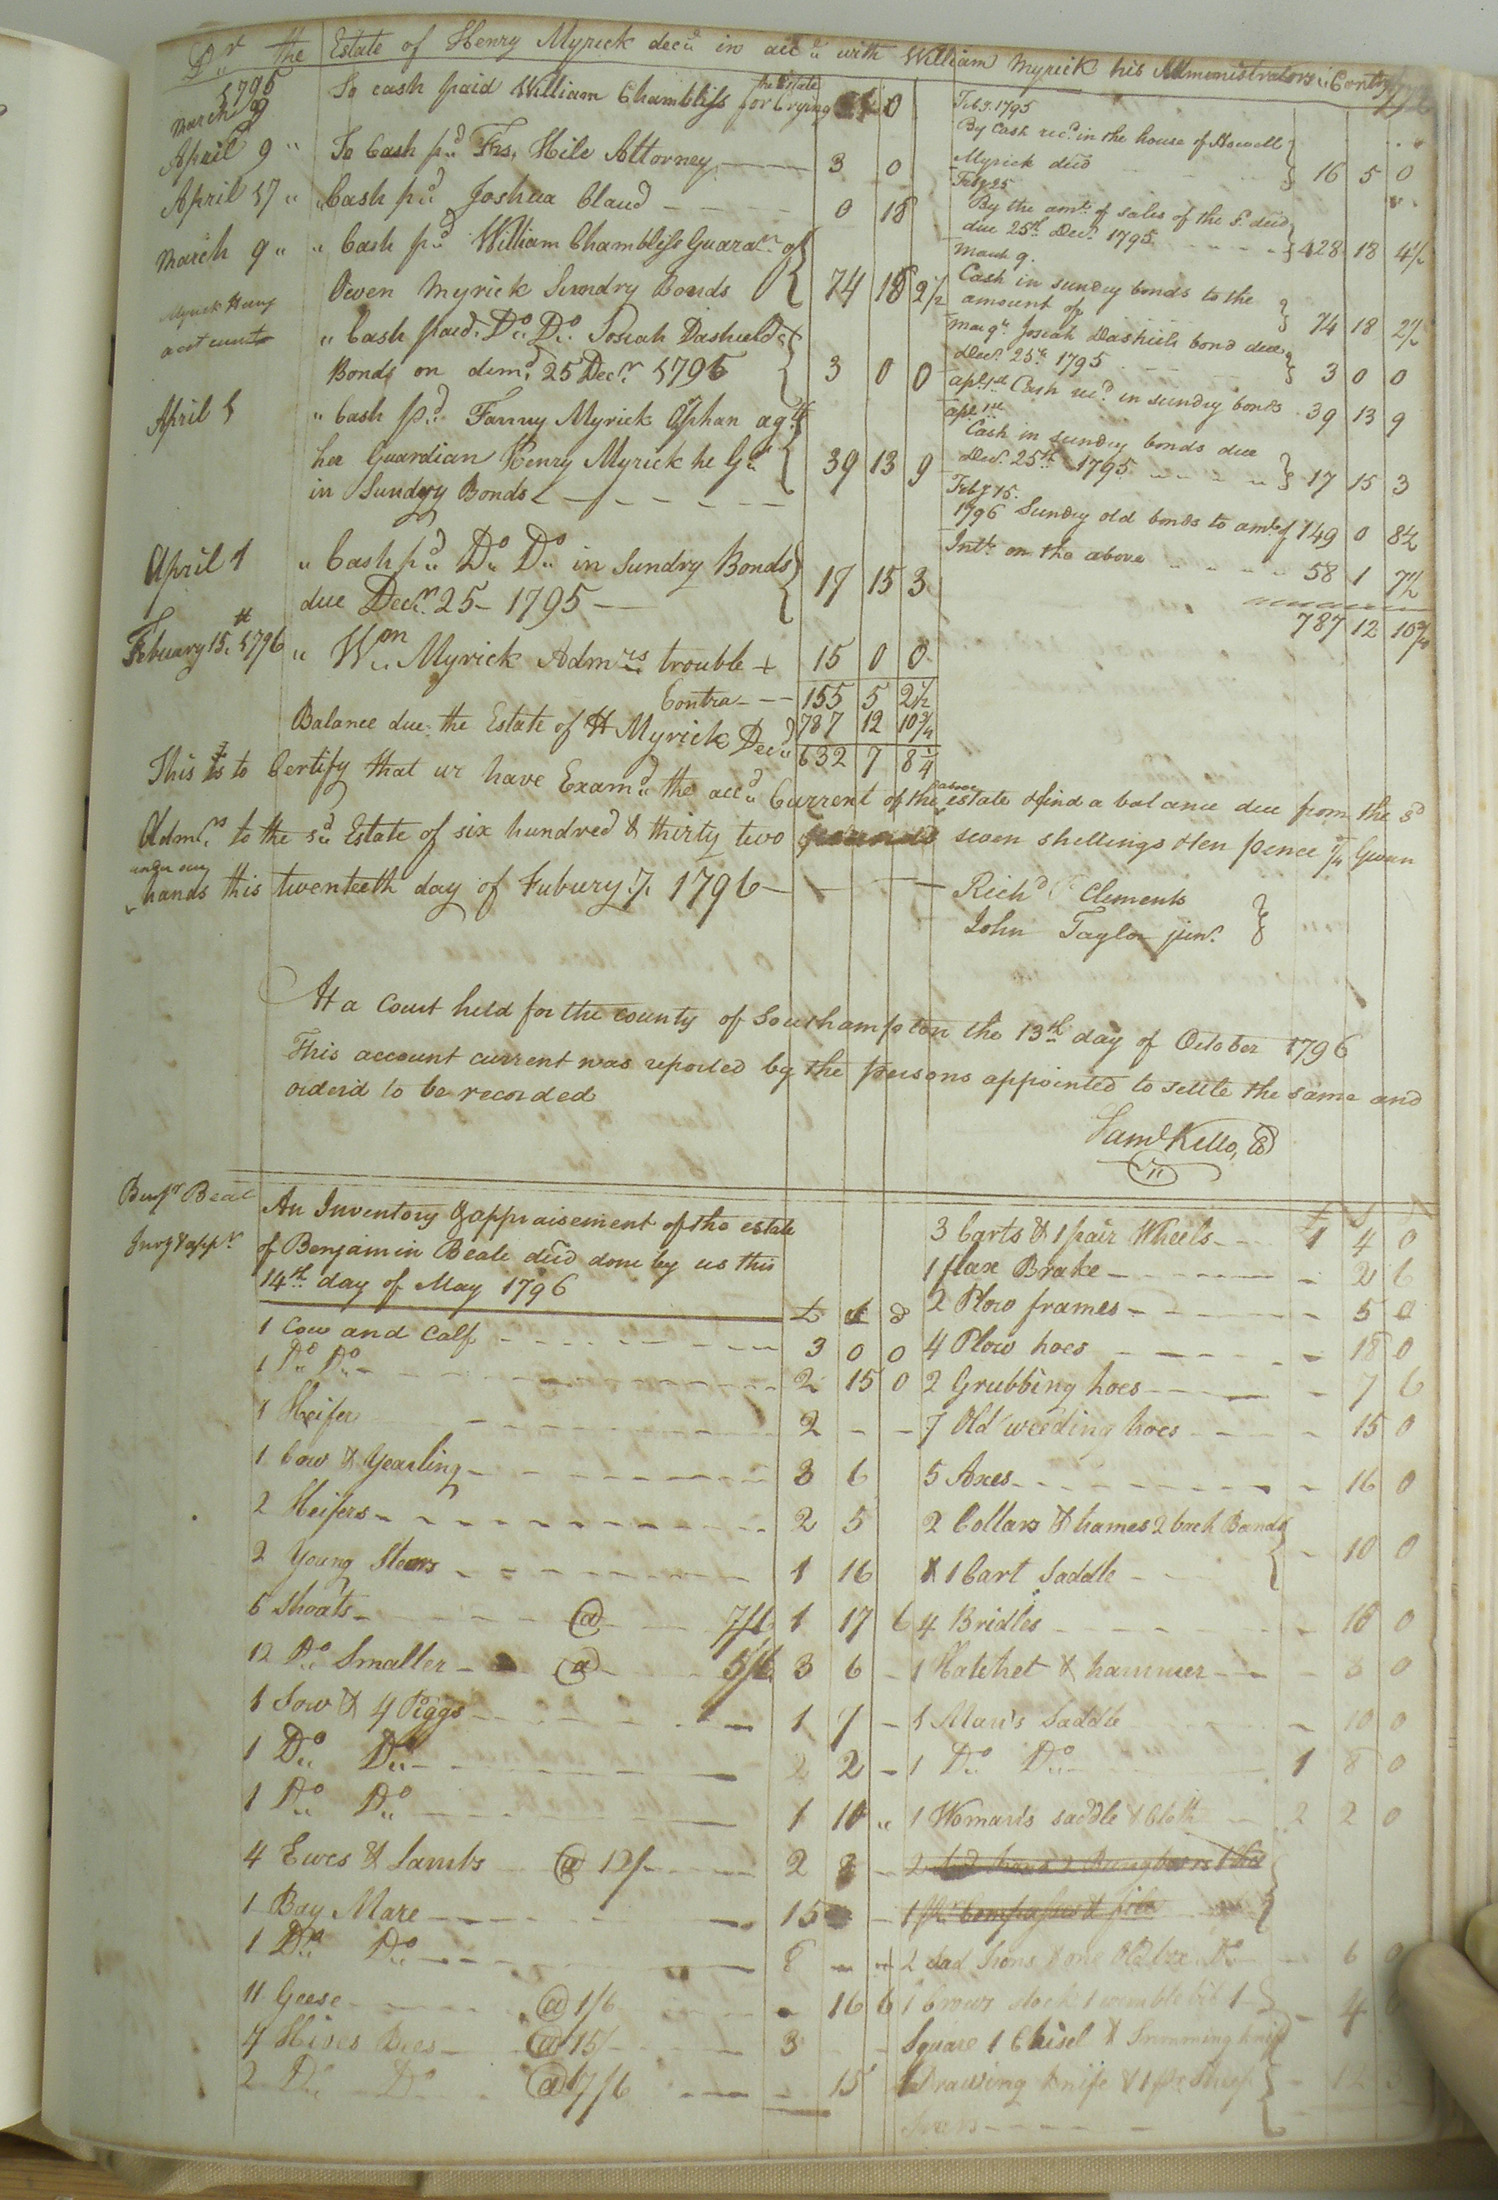 Dr the Estate of Henry Myrick decd in accd with William Myrick his Administrators Contra
1795
March 9 To cash paid William Chambliss for Crying the Estate 0
April 9 " To Cash pd Frs. Hile Attorney 3 0
April 17 " " Cash pd Joshua Claud 0 18
March 9 " " Cash pd William Chambliss Guaran of
Owen Myrick Sundry Bonds 74 18 2½
Myrick Henry
acct currt
" Cash paid Do Do Josiah Dashield
Bonds on demd 25 Decr 1795 3 0 0
April 1 " Cash pd Fanny Myrick Orphan agt
her Guardian Henry Myrick he Gd
in Sundry Bonds 39 13 9
April 1 " Cash pd Do Do in Sundry Bonds
due Decr 25 1795 17 15 3
Febuary 15th 1796 " Wm Myrick Admrs trouble + 15 0 0
155 5 2½
Contra 787 12 10¾
Balance due the Estate of H Myrick Decd 632 7 8¼
Feby 1795
By Cash recd in the house of Howell
Myrick decd 16 5 0
Feby 25
By the amt of sales of the sd decd
due 25th Decr 1795 428 18 4½
March 9
Cash in sundry bonds to the
amount of 74 18 2½
Josiah Dashiels bond due
Decr 25th 1795 3 0 0
apl 1st Cash recd in sundry bonds 39 13 9
apl 1st
Cash in sundry bonds due
Decr 25th 1795 17 15 3
Feby 15
1796 Sundry old bonds to amt of 149 0 8½
Intt on the above 58 1 7½
787 12 10¾
This is to Certify that we have Examd the accd Current of the above estate & find a balance due from the sd
Admrs to the sd Estate of six hundred & thirty two pounds seven shellings & ten pence ¼ Given
under our
hands this twenteeth day of Fubury 1796
Richd Clements
John Taylor junr
At a Court held for the county of Southampton the 13th day of October 1796
This account current was reported by the persons appointed to settle the same and
orderd to be recorded
Saml Kello, C
Benjr Beal
Invy & appt
An Inventory & appraisement of the estate
of Benjamin Beale decd done by us this
14th day of May 1796
£ s d
1 Cow and Calf 3 0 0
1 Do Do 2 15 0
1 Heifer 2 - -
1 Cow & Yearling 3 6
2 Heifers 2 5
2 Young Steers 1 16
5 Shoats @ 7/6 1 17 6
12 Do Smaller @ 5/6 3 6 -
1 Sow & 4 Piggs 1 7 -
1 Do Do 2 2 -
1 Do Do 1 10 "
4 Ewes & Lambs @ 12/ 2 8 -
1 Bay Mare 15 -
1 Do Do 8 - -
11 Geese @ 1/6 - 16 6
4 Hives Bees @ 15/ 3 - -
2 Do Do @ 7/6 - 15
3 Carts & 1 pair Wheels 1 4 0
1 flax Brake - 2 6
2 Plow frames - 5 0
4 Plow hoes - 18 0
2 Grubbing hoes - 7 6
7 Old weeding hoes - 15 0
5 Axes - 16 0
2 Collars & hames 2 back Bands
& 1 Cart Saddle - 10 0
4 Bridles - 18 0
1 Hatchet & hammer - 3 0
1 Man's Saddle - 10 0
1 Do Do 1 8 0
1 Woman's saddle & Cloth 2 2 0
1 pr Compasses & file
2 Sad Irons & one Old box Do - 6 0
1 Crows stock 1 wimble bit 1
Square 1 Chisel & Drawing knife - 4
1 Drawing knife & 1 pr Sheep